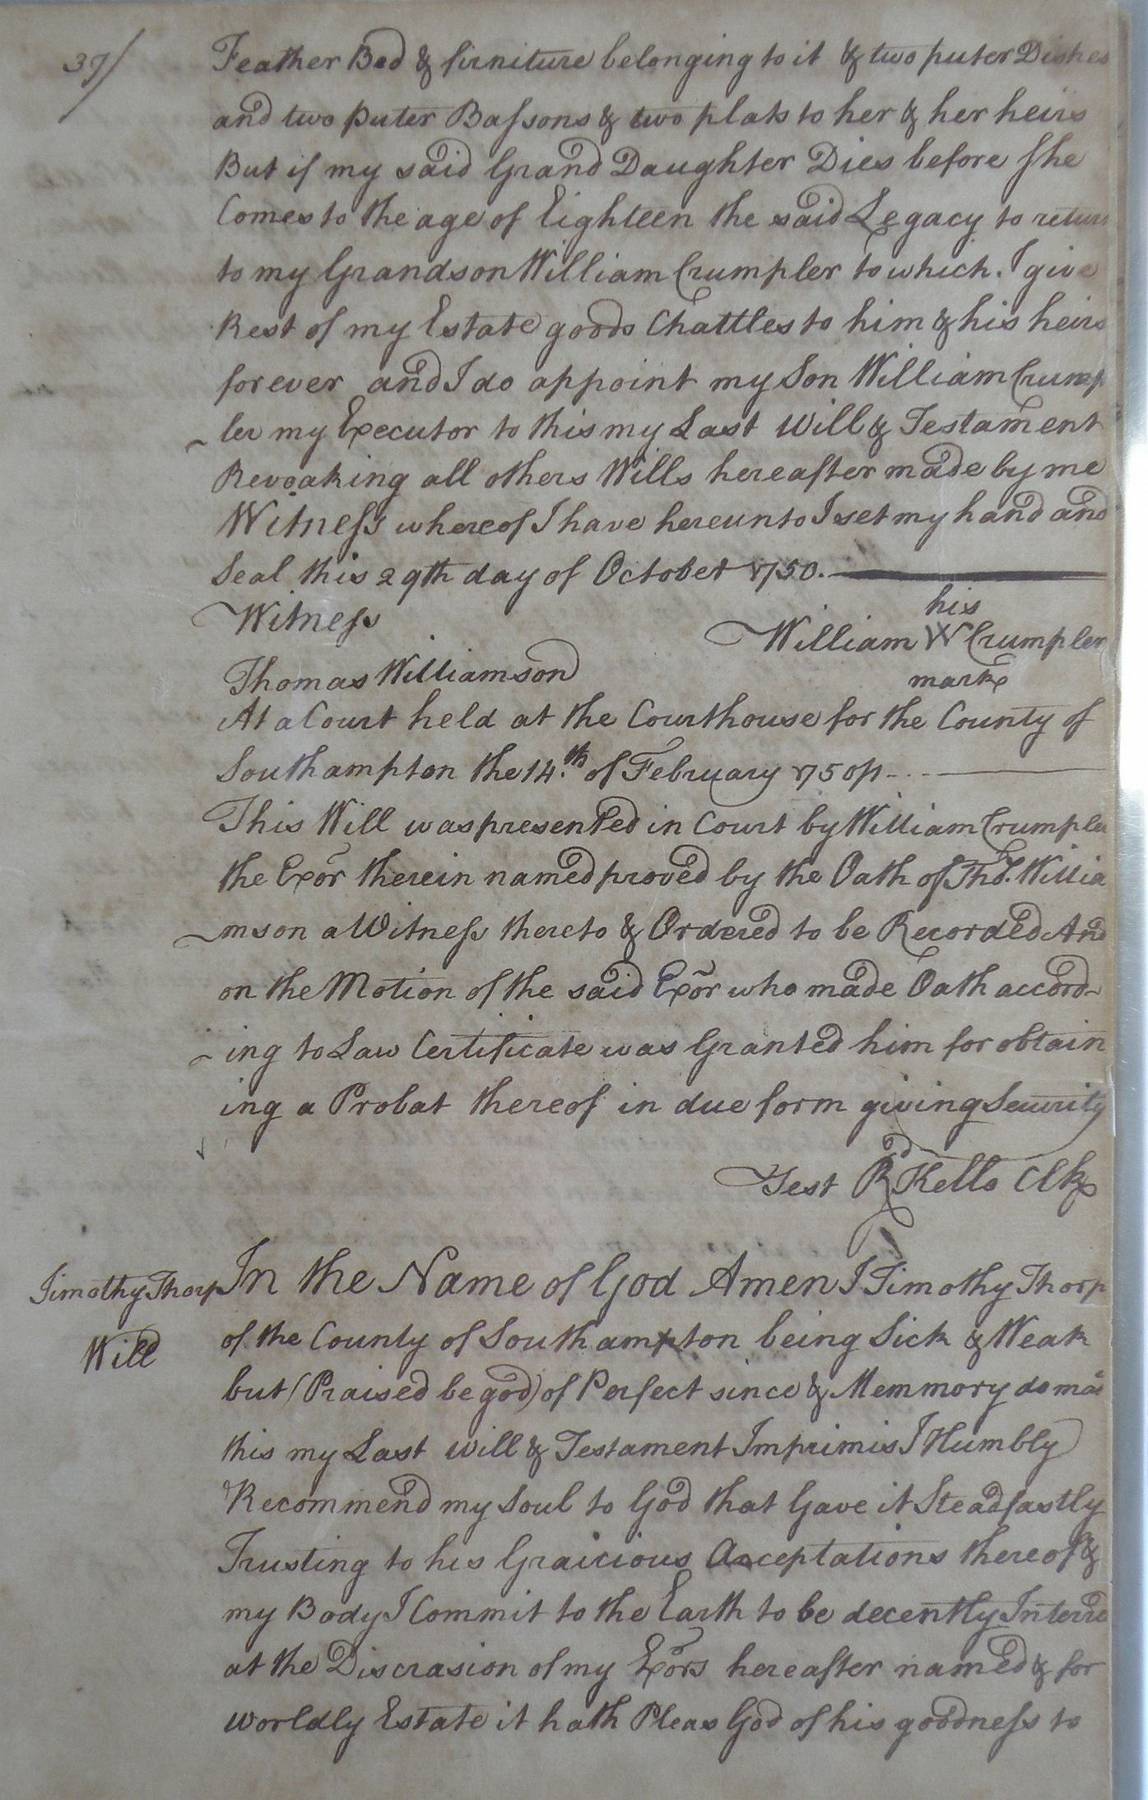 37/
Feather Bed & firniture belonging to it & two puter Dishes
and two puter Bassons & two plats to her & her heirs
But if my said Grand Daughter Dies before she
Comes to the age of Eighteen the said Legacy to return
to my Grandson William Crumpler to which. I give
Rest of my Estate goods Chattles to him & his heirs
forever and I do appoint my Son William Crump
ler my Executor to this my Last Will & Testament
Revoaking all others Wills hereafter made by me
Witness whereof I have hereunto I set my hand and
Seal this 29th day of October 1750.
his
Witness William W Crumpler
mark
Thomas Williamson
At a Court held at the Courthouse for the County of
Southampton the 14.th of February 1750
This Will was presented in Court by William Crumpler
the Exor therein named proved by the Oath of Tho.s Willia
mson a Witness thereto & Ordered to be Recorded And
on the Motion of the said Exor who made Oath accord
ing to Law Certificate was Granted him for obtain
ing a Probat thereof in due form giving Security
Test Rd Kello Clk
Timothy Thorp
Will
In the Name of God Amen I Timothy Thorp
of the County of Southampton being Sick & Weak
but (Praised be god) of Perfect since & Memmory do mae
this my Last will & Testament Imprimis I Humbly
Recommend my Soul to God that Gave it Steadfastly
Trusting to his Graicious Acceptations thereof &
my Body I Commit to the Earth to be decently Interrd
at the Discrasion of my Exors hereafter named & for
worldly Estate it hath Pleas God of his goodness to